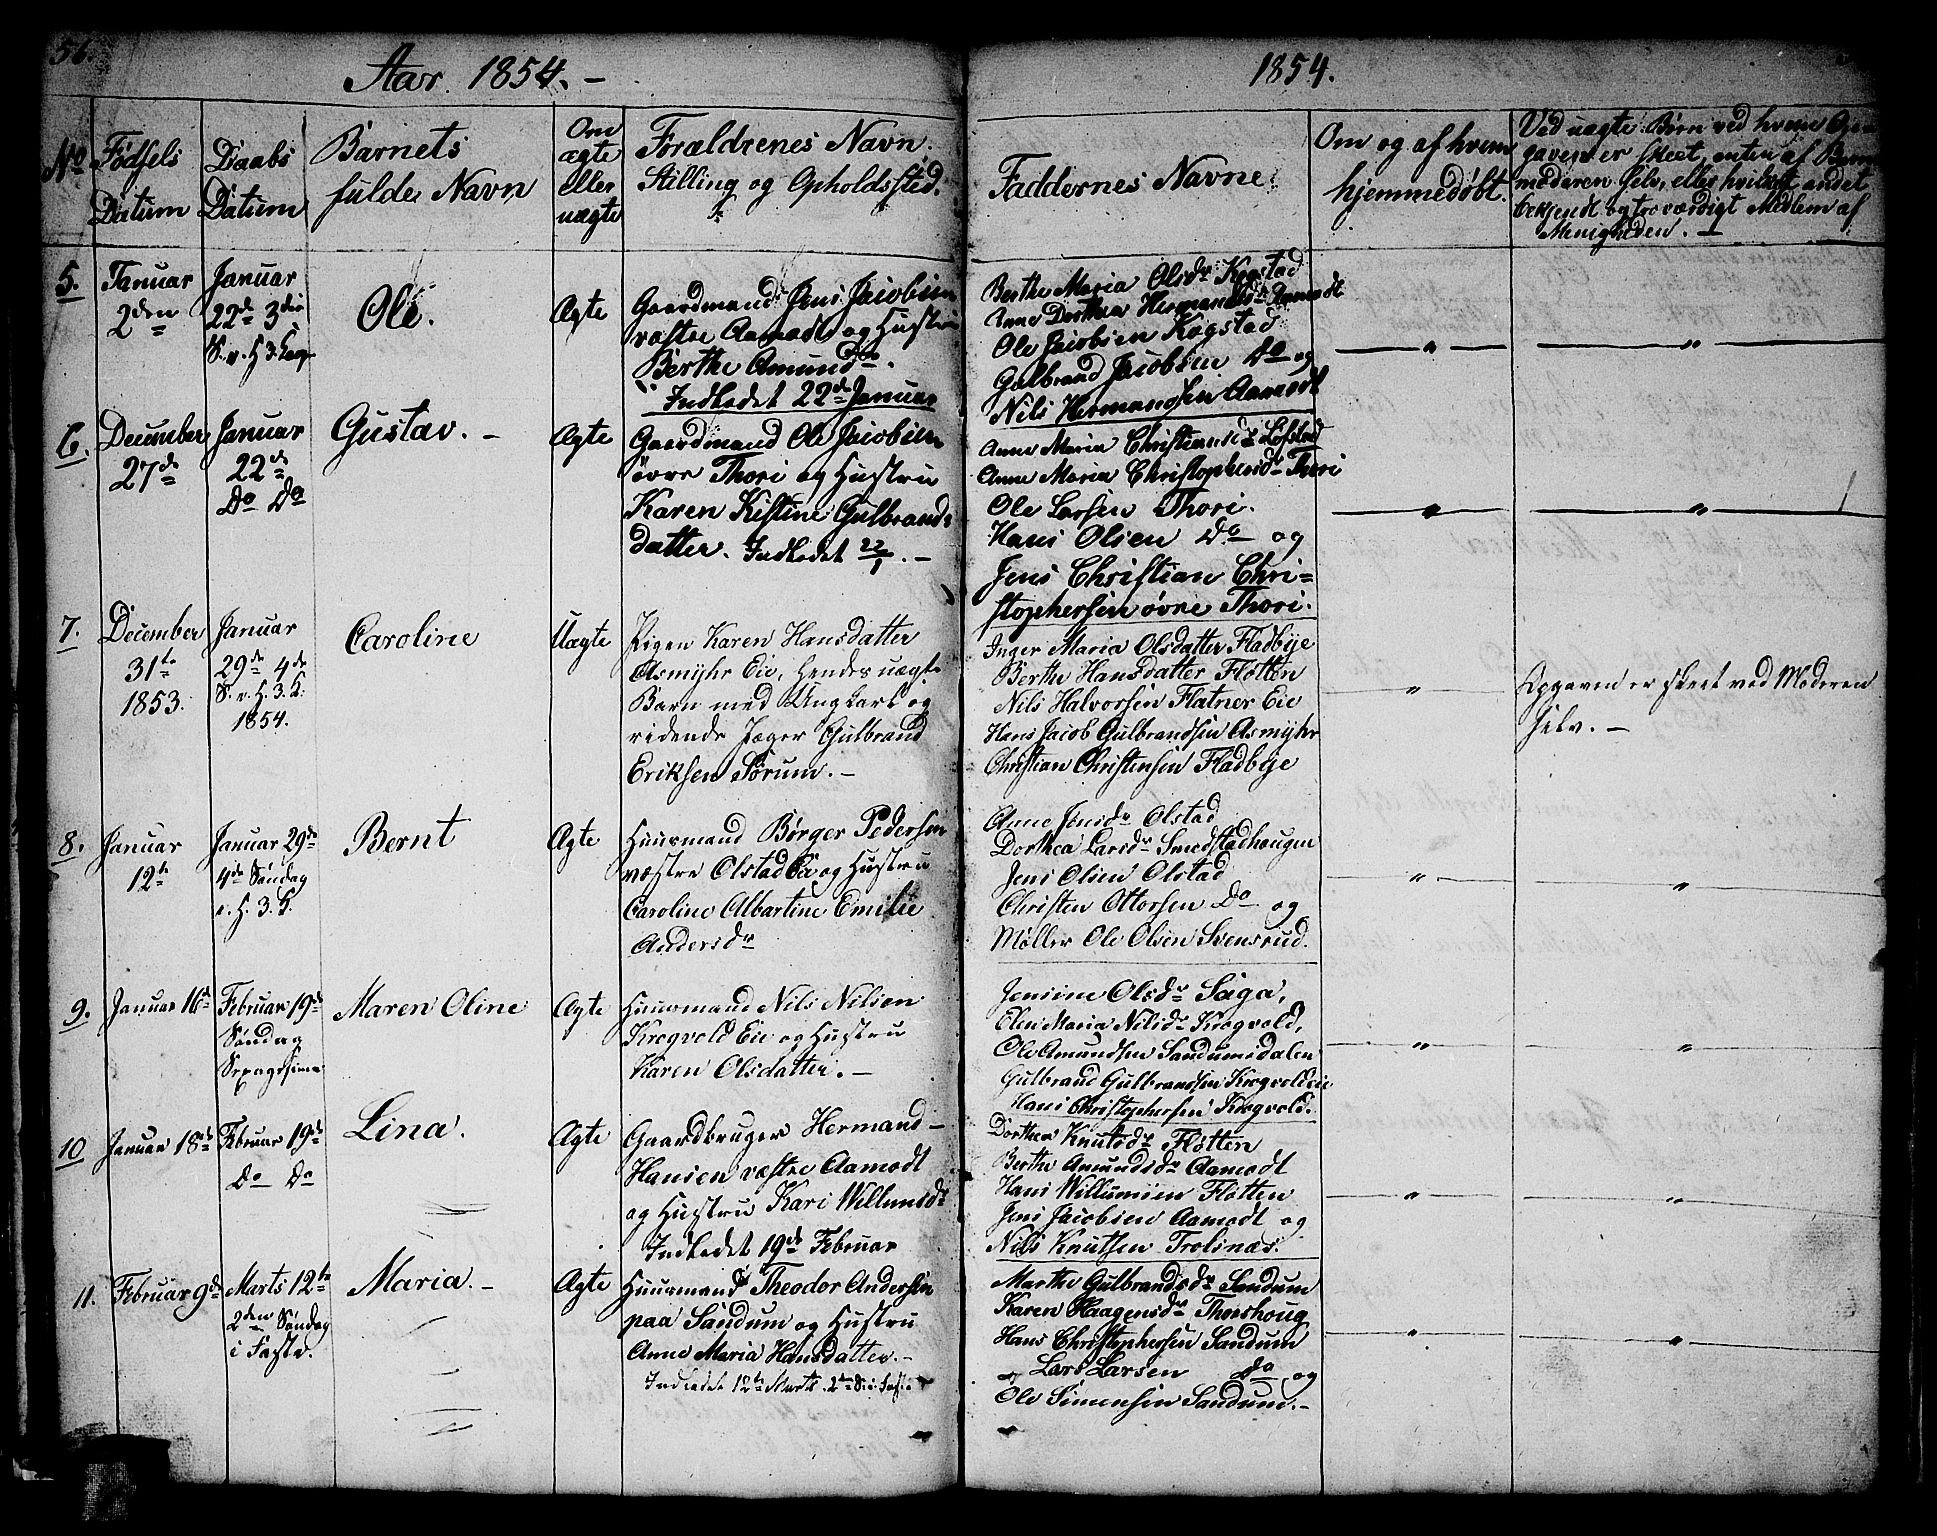 56.
Aar 1854. –
1854.
No
Fødsels
Datum
Daabs
Datum
Barnets
fulde Navn
Om
ægte
eller
uægte
Forældrenes Navn.
Stilling og Opholdssted.
Faddernes Navne.
Om og af hvem
hjemmedøbt.
Ved uægte Børn ved hvem Op-
gaven er skeet, enten af Barne-
moderen selv, eller hvilket andet
bekjendt og troværdigt Medlem af
Menigheden. –
5.
Januar
2den
Januar
22de 3die
S. e. H. 3. Kong
Ole.
Ægte
Gaardmand Jens Jacobsen
vestre Aamodt og Hustru
Berthe Amundsdr.
Indledet 22de Januar
Berthe Maria Olsdr Kogstad
Anne Dorthea Hermansdr Aamodt
Ole Jacobsen Kogstad
Gulbrand Jacobsen Do og
Nils Hermandsen Aamodt
6.
December
27de
Januar
22de
Do Do
Gustav. –
Ægte
Gaardmand Ole Jacobsen
øvre Thori og Hustru
Karen Kistine Gulbrands-
datter. Indledet 22/1. –
Anne Maria Christiansdr Lofstad
Anne Maria Christophersdr Thori
Ole Larsen Thori.
Hans Olsen Do og
Jens Christian Chri-
stophersen øvre Thori.
7.
December
31te
1853.
Januar
29de 4de
S. e. H. 3. K.
1854.
Caroline
Uægte
Pigen Karen Hansdatter
Asmyhr Eie, hendes uægte
Barn med Ungkarl og
ridende Jæger Gulbrand
Eriksen Sørum. –
Inger Maria Olsdatter Fladbye
Berthe Hansdatter Fløtten
Nils Halvorsen Flatner Eie
Hans Jacob Gulbrandsen Asmyhr
Christian Christensen Fladbye
Opgaven er skeet ved Moderen
selv. –
8.
Januar
12te
Januar 29de
4de Søndag
e. H. 3. K.
Bernt
Ægte
Huusmand Børger Pedersen
vestre Olstad Eie og Hustru
Caroline Albertine Emilie
Andersdr
Anne Jensdr Olstad
Dorthea Larsdr Smedstadhougen
Jens Olsen Olstad
Christen Ottersen Do og
Møller Ole Olsen Svensrud.
9.
Januar 16de
Februar 19de
Søndag
Sexagesima
Maren Oline
Ægte
Huusmand Nils Nilsen
Krogvold Eie og Hustru
Karen Olsdatter. –
Jensine Olsdr Saga,
Olea Maria Nilsdr Krogvold,
Ole Amundsen Sandumsdalen
Gulbrand Gulbrandsen Krogvoldeie
Hans Christophersen Krogvold.
10
Januar 18de
Februar 19de
Do Do
Lina.
Ægte
Gaardbruger Hermand
Hansen vestre Aamodt
og Hustru Kari Willumsdr
Indledet 19de Februar
Dorthea Knutsdr Fløtten
Berthe Amundsdr Aamodt
Hans Willumsen Fløtten
Jens Jacobsen Aamodt og
Nils Knutsen Trolsnæs.
11.
Februar 9de
Marts 12te
2den Søndag
i Faste.
Maria. –
Ægte
Huusmand Theodor Andersen
paa Sandum og Hustru
Anne Maria Hansdatter. –
Indledet 12te Marts 2den S. i Faste
Marthe Gulbrandsdr Sandum
Karen Haagensdr Thorshoug
Hans Christophersen Sandum
Lars Larsen Do og
Ole Simensen Sandum. –